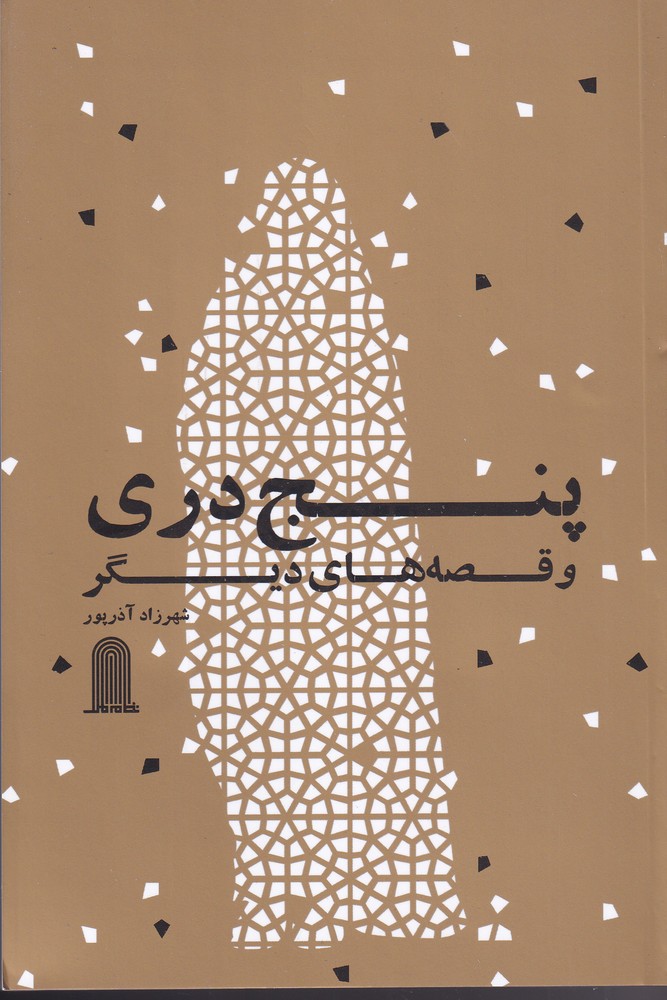 پنج دری
و قصه‌های دیگر
شهرزاد آذرپور